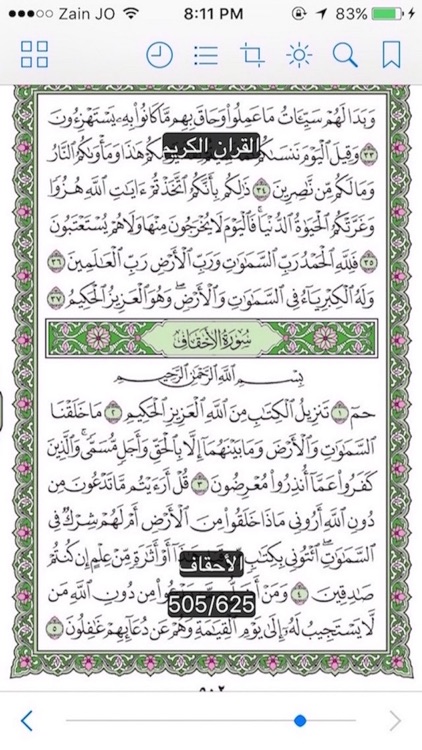 Zain JO 8:11 PM 83%
وَبَدَا لَهُمْ سَيِّئَاتُ مَا عَمِلُوا۟ وَحَاقَ بِهِم مَّا كَانُوا۟ بِهِۦ يَسْتَهْزِءُونَ
القران الكريم
٣٣ وَقِيلَ ٱلْيَوْمَ نَنسَىٰكُمْ هَٰذَا وَمَأْوَىٰكُمُ ٱلنَّارُ
وَمَا لَكُم مِّن نَّٰصِرِينَ ٣٤ ذَٰلِكُم بِأَنَّكُمُ ٱتَّخَذْتُمْ ءَايَٰتِ ٱللَّهِ هُزُوًا
وَغَرَّتْكُمُ ٱلْحَيَوٰةُ ٱلدُّنْيَا ۚ فَٱلْيَوْمَ لَا يُخْرَجُونَ مِنْهَا وَلَا هُمْ يُسْتَعْتَبُونَ
٣٥ فَلِلَّهِ ٱلْحَمْدُ رَبِّ ٱلسَّمَٰوَٰتِ وَرَبِّ ٱلْأَرْضِ رَبِّ ٱلْعَٰلَمِينَ ٣٦
وَلَهُ ٱلْكِبْرِيَآءُ فِى ٱلسَّمَٰوَٰتِ وَٱلْأَرْضِ ۖ وَهُوَ ٱلْعَزِيزُ ٱلْحَكِيمُ ٣٧
سُورَةُ الأَحْقَافِ
بِسْمِ ٱللَّهِ ٱلرَّحْمَٰنِ ٱلرَّحِيمِ
حمٓ ١ تَنزِيلُ ٱلْكِتَٰبِ مِنَ ٱللَّهِ ٱلْعَزِيزِ ٱلْحَكِيمِ ٢ مَا خَلَقْنَا
ٱلسَّمَٰوَٰتِ وَٱلْأَرْضَ وَمَا بَيْنَهُمَآ إِلَّا بِٱلْحَقِّ وَأَجَلٍ مُّسَمًّى ۚ وَٱلَّذِينَ
كَفَرُوا۟ عَمَّآ أُنذِرُوا۟ مُعْرِضُونَ ٣ قُلْ أَرَءَيْتُم مَّا تَدْعُونَ مِن
دُونِ ٱللَّهِ أَرُونِى مَاذَا خَلَقُوا۟ مِنَ ٱلْأَرْضِ أَمْ لَهُمْ شِرْكٌ فِى
ٱلسَّمَٰوَٰتِ ۖ ٱئْتُونِى بِكِتَٰبٍ أَوْ أَثَٰرَةٍ مِّنْ عِلْمٍ إِن كُنتُمْ
الأحقاف
صَٰدِقِينَ ٤ وَمَنْ مِن دُونِ ٱللَّهِ مَن
505/625
لَّا يَسْتَجِيبُ لَهُۥٓ إِلَىٰ يَوْمِ ٱلْقِيَٰمَةِ وَهُمْ عَن دُعَآئِهِمْ غَٰفِلُونَ ٥
٥٠٢